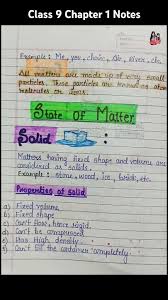 Class 9 Chapter 1 Notes
Example: Me, you, chair, Air, river, etc.
All matters are made up of very small
particles. These particles are known as atom
molecules or ions.
State of Matter
Solid :-
Matters having fixed shape and volume are
considered as solids.
Example: stone, wood, ice, brick, etc.
Properties of solid
a) Fixed volume
b) Fixed shape
c) Can't flow, hence rigid.
d) Can't be compressed
e) Has High density
f) Can't fill the container completely.